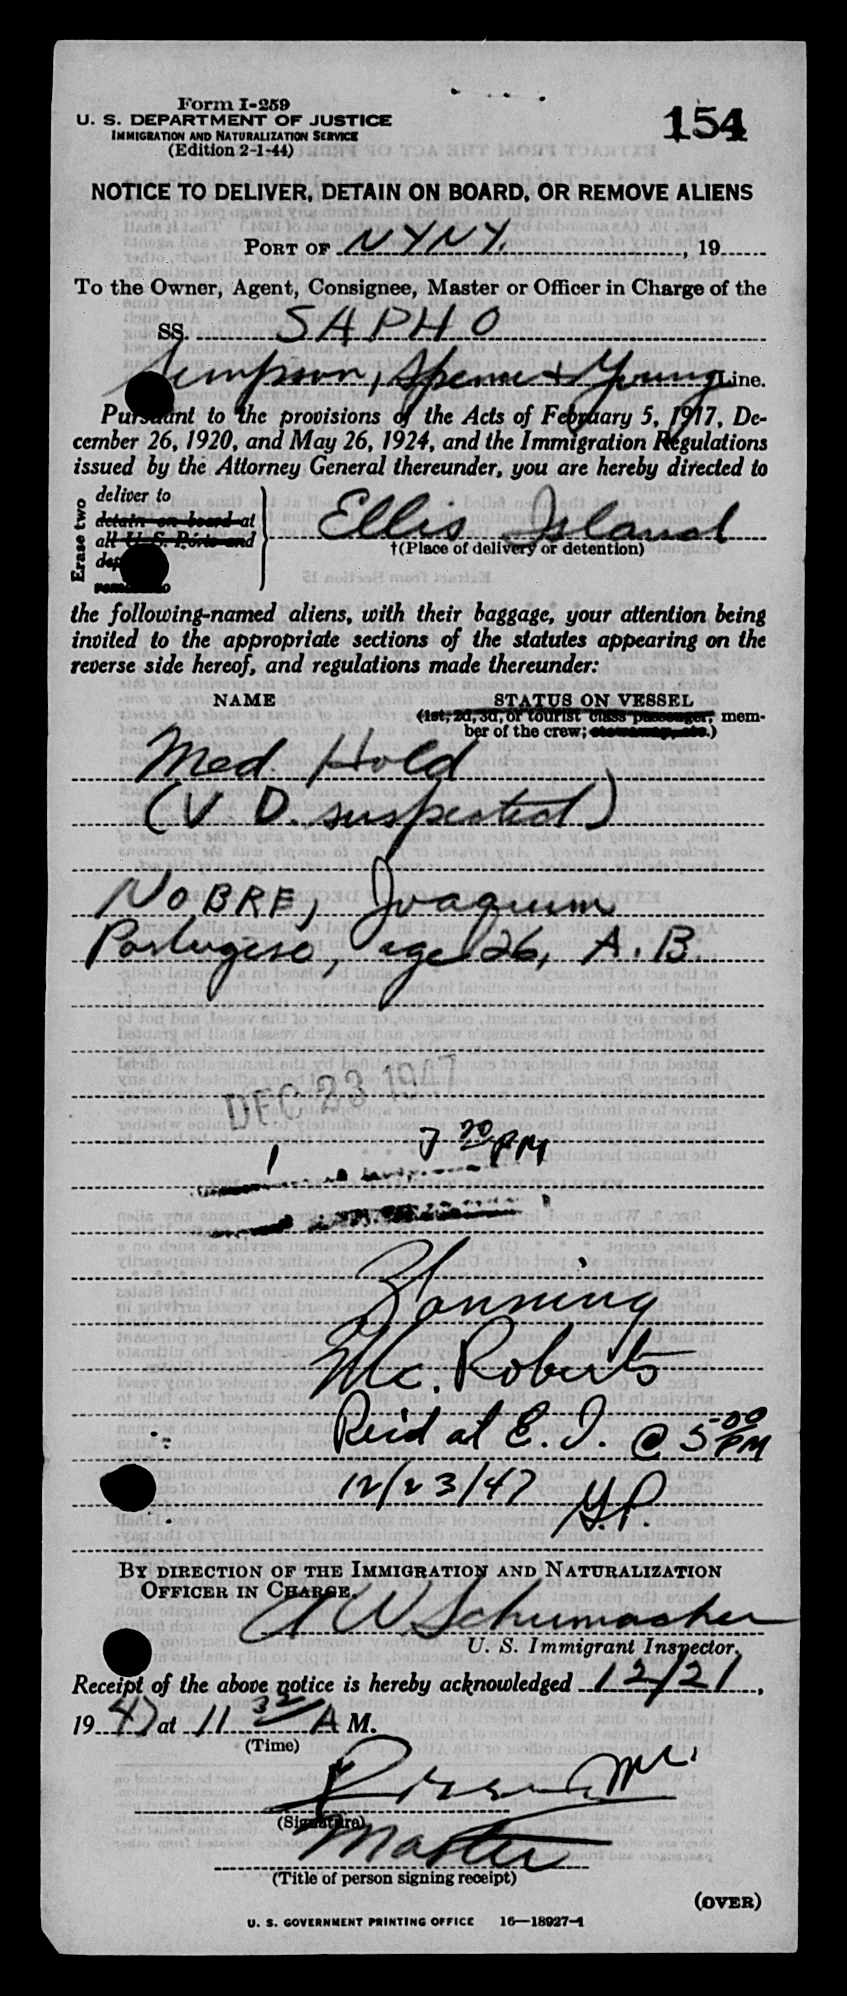 Form I-259
U. S. DEPARTMENT OF JUSTICE
IMMIGRATION AND NATURALIZATION SERVICE
(Edition 2-1-44)
154
NOTICE TO DELIVER, DETAIN ON BOARD, OR REMOVE ALIENS
PORT OF NYNY. , 19
To the Owner, Agent, Consignee, Master or Officer in Charge of the
SS. SAPHO
Simpson, Spence & Young Line.
Pursuant to the provisions of the Acts of February 5, 1917, De-
cember 26, 1920, and May 26, 1924, and the Immigration Regulations
issued by the Attorney General thereunder, you are hereby directed to
Erase two
deliver to
detain on board at
all U. S. Ports and
Ellis Island
†(Place of delivery or detention)
the following-named aliens, with their baggage, your attention being
invited to the appropriate sections of the statutes appearing on the
reverse side hereof, and regulations made thereunder:
NAME STATUS ON VESSEL
(1st, 2d, 3d, or tourist class passenger; mem-
ber of the crew; stowaway, etc.)
Med. Hold
(V D. suspected)
NOBRE, Joaquim
Portugese, age 26, A. B.
DEC 23 1947
7 20 PM
Mc. Roberts
Rec'd at E. I. @ 5 00 PM
12/23/47 G.P.
BY DIRECTION OF THE IMMIGRATION AND NATURALIZATION
OFFICER IN CHARGE.
A W Schumacher
U. S. Immigrant Inspector.
Receipt of the above notice is hereby acknowledged 12/21,
19 47 at 11 32 A M.
(Time)
(Signature)
Master
(Title of person signing receipt)
(OVER)
U. S. GOVERNMENT PRINTING OFFICE 16—18927-1